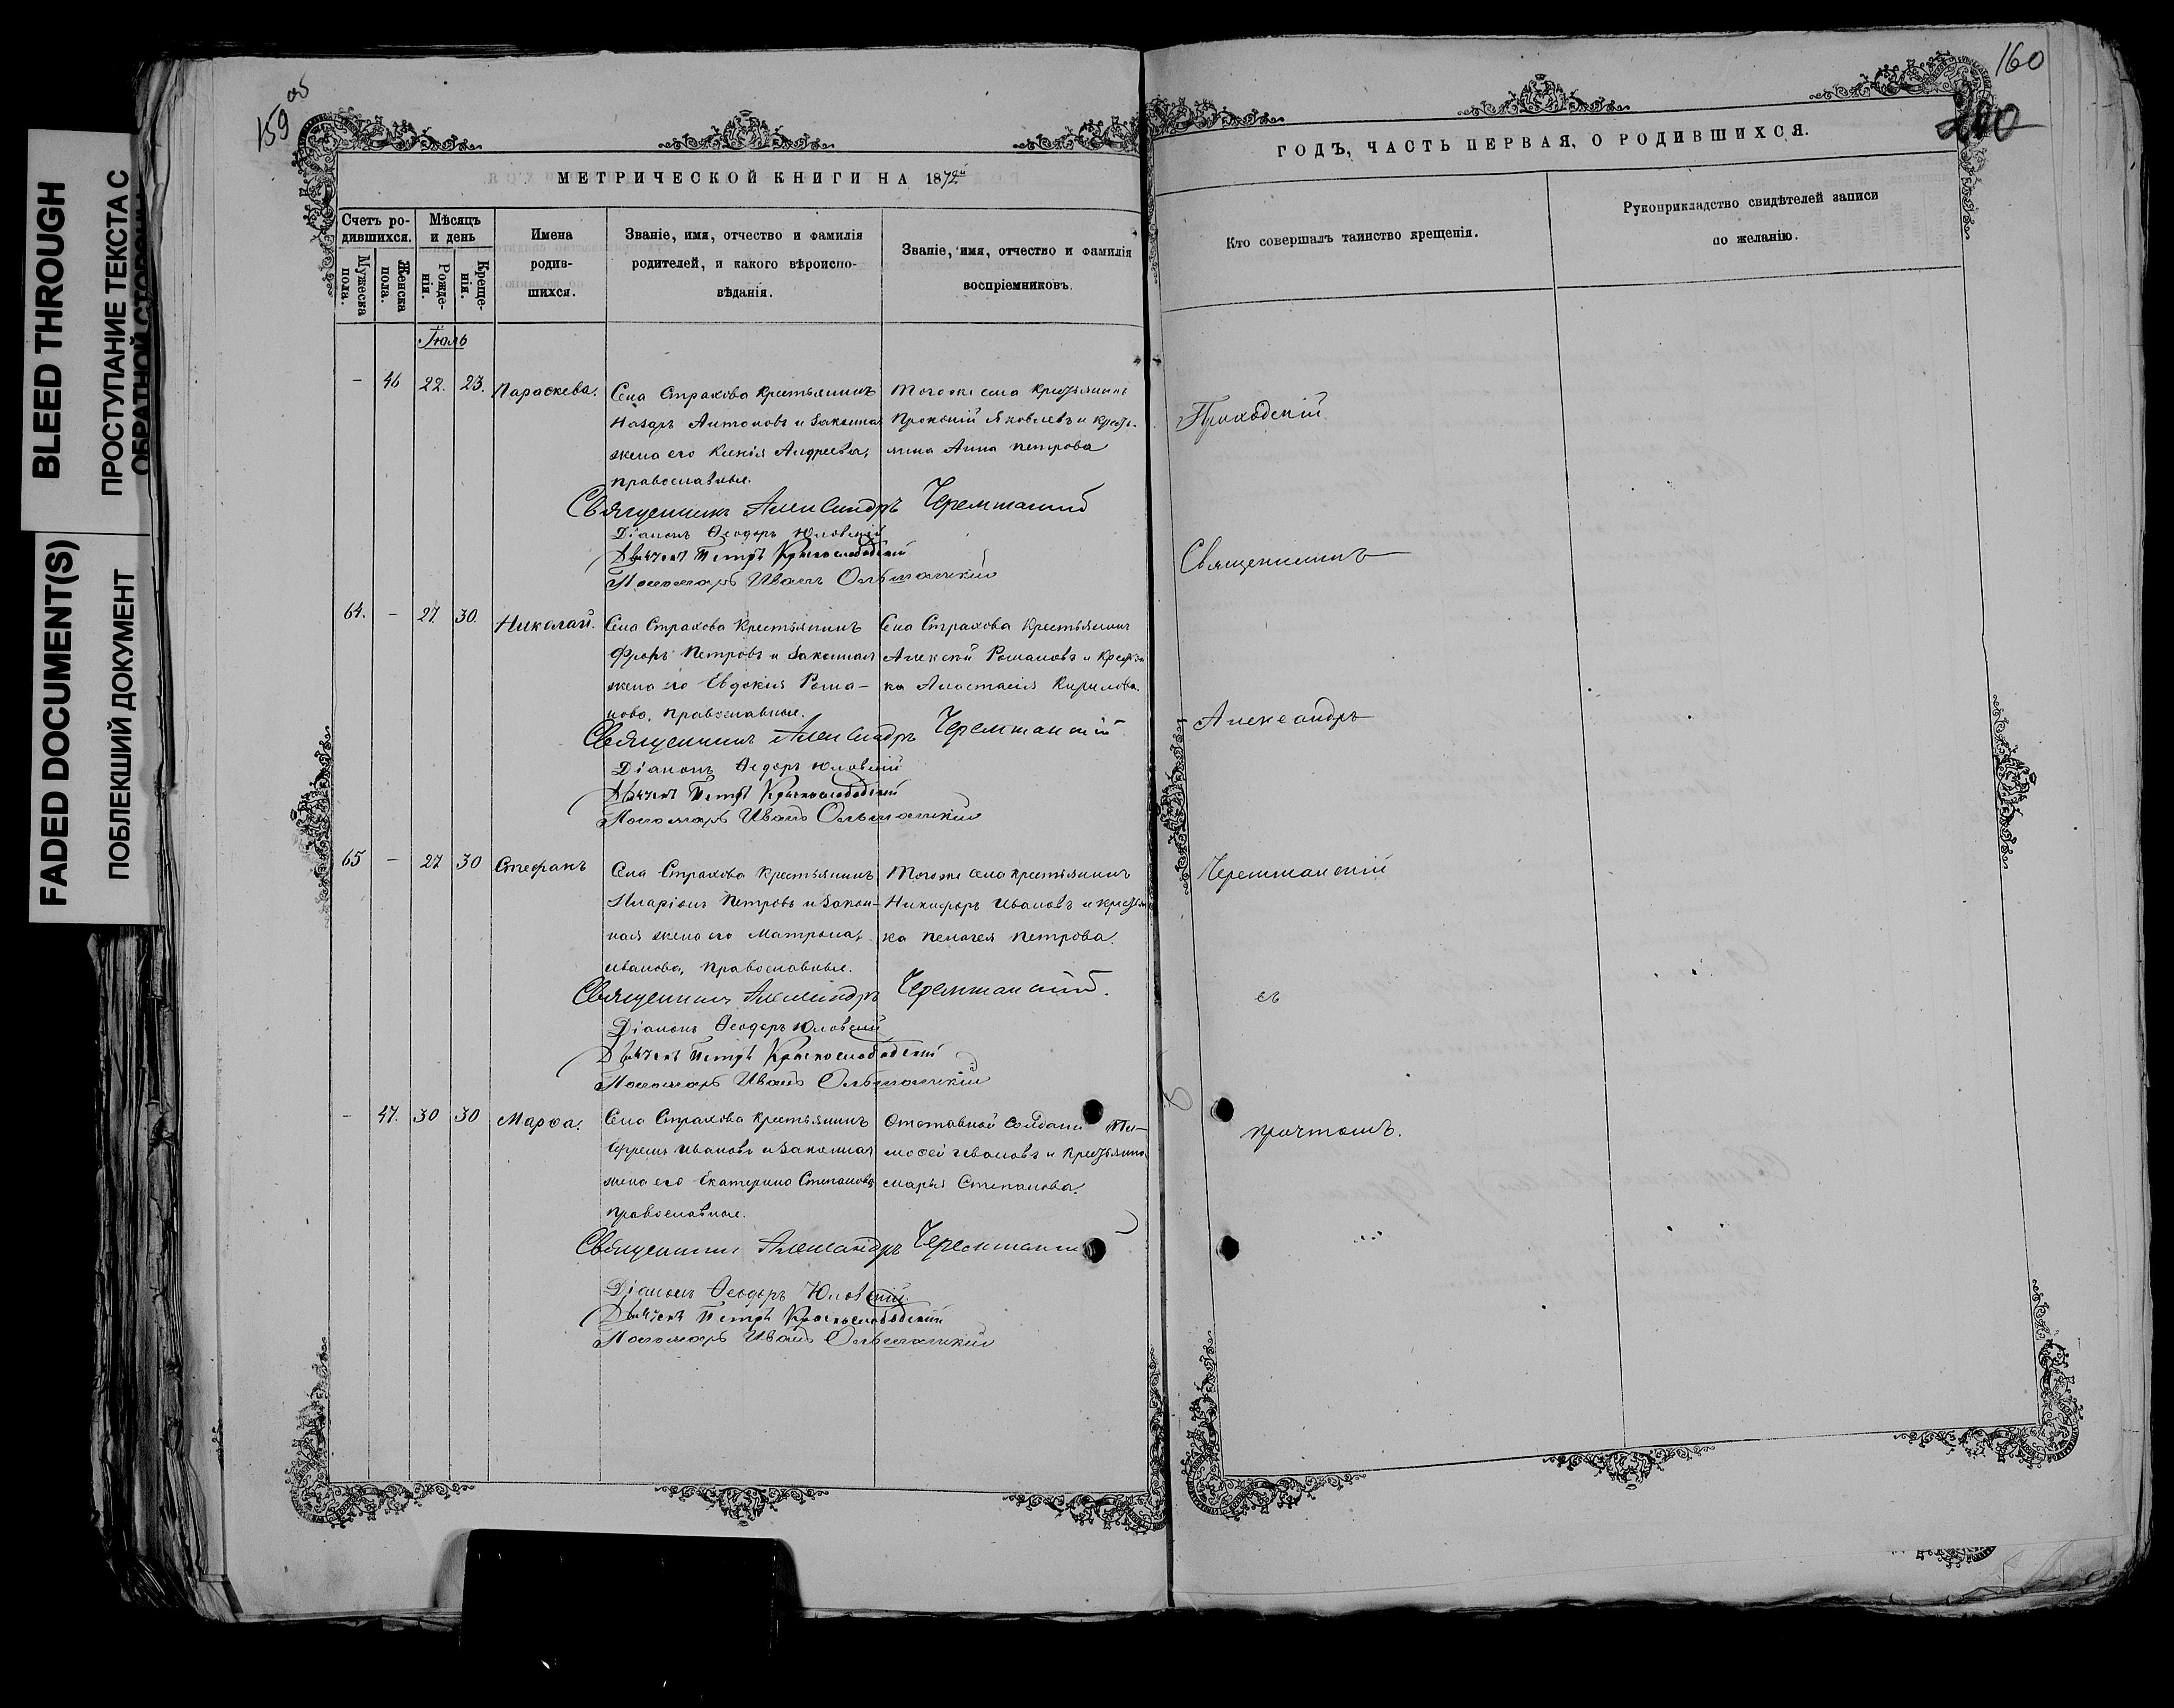 BLEED THROUGH
ПРОСТУПАНИЕ ТЕКСТА С
ОБРАТНОЙ СТОРОНЫ
FADED DOCUMENT(S)
ПОБЛЕКШИЙ ДОКУМЕНТ
159 об
МЕТРИЧЕСКОЙ КНИГИ НА 1872й
Счетъ ро-
дившихся.
Мужеска
пола.
Женска
пола.
Мѣсяцъ
и день
Рожде-
нія.
Креще-
нія.
Имена
родив-
шихся.
Званіе, имя, отчество и фамилія
родителей, и какого вѣроиспо-
вѣданія.
Званіе, имя, отчество и фамилія
воспріемниковъ.
Іюль
- 46 22. 23. Параскева.
Села Страхова крестьянинъ
Назаръ Антоновъ и законная
жена его Ксенія Андреева,
православные.
Тогоже села крестьянинъ
Прокопій Яковлевъ и кресть-
янка Анна Петрова
Священникъ Александръ Черемшанскій
Діаконъ Ѳеодоръ Юловскій
Дьячекъ Петръ Краснослободскій
Пономарь Иванъ Ольшанскій
64. - 27 30. Николай.
Села Страхова крестьянинъ
Флоръ Петровъ и законная
жена его Евдокія Рома-
нова, православные.
Села Страхова крестьянинъ
Алексѣй Романовъ и крестьян
ка Анастасія Кирилова.
Священникъ Александръ Черемшанскій
Діаконъ Ѳеодоръ Юловскій
Дьячекъ Петръ Краснослободскій
Пономарь Иванъ Ольшанскій
65 - 27 30 Стефанъ
Села Страхова крестьянинъ
Иларіонъ Петровъ и закон-
ная жена его Матрона,
Иванова, православные.
Тогоже села крестьянинъ
Никифоръ Ивановъ и крестьян
ка Пелагея Петрова.
Священникъ Александръ Черемшанскій.
Діаконъ Ѳеодоръ Юловскій
Дьячекъ Петръ Краснослободскій
Пономарь Иванъ Ольшанскій
- 47. 30 30 Марѳа.
Села Страхова крестьянинъ
Ефремъ Ивановъ и законная
жена его Екатерина Степанова
православные.
Отставной солдатъ Ти-
моѳей Ивановъ и крестьянка
Марья Степанова.
Священникъ Александръ Черемшанскій
Діаконъ Ѳеодоръ Юловскій
Дьячекъ Петръ Краснослободскій
Пономарь Иванъ Ольшанскій
160
200
ГОДЪ, ЧАСТЬ ПЕРВАЯ, О РОДИВШИХСЯ.
Кто совершалъ таинство крещенія.
Рукоприкладство свидѣтелей записи
по желанію.
Приходскій
Священникъ
Александръ
Черемшанскій
съ
причтомъ.